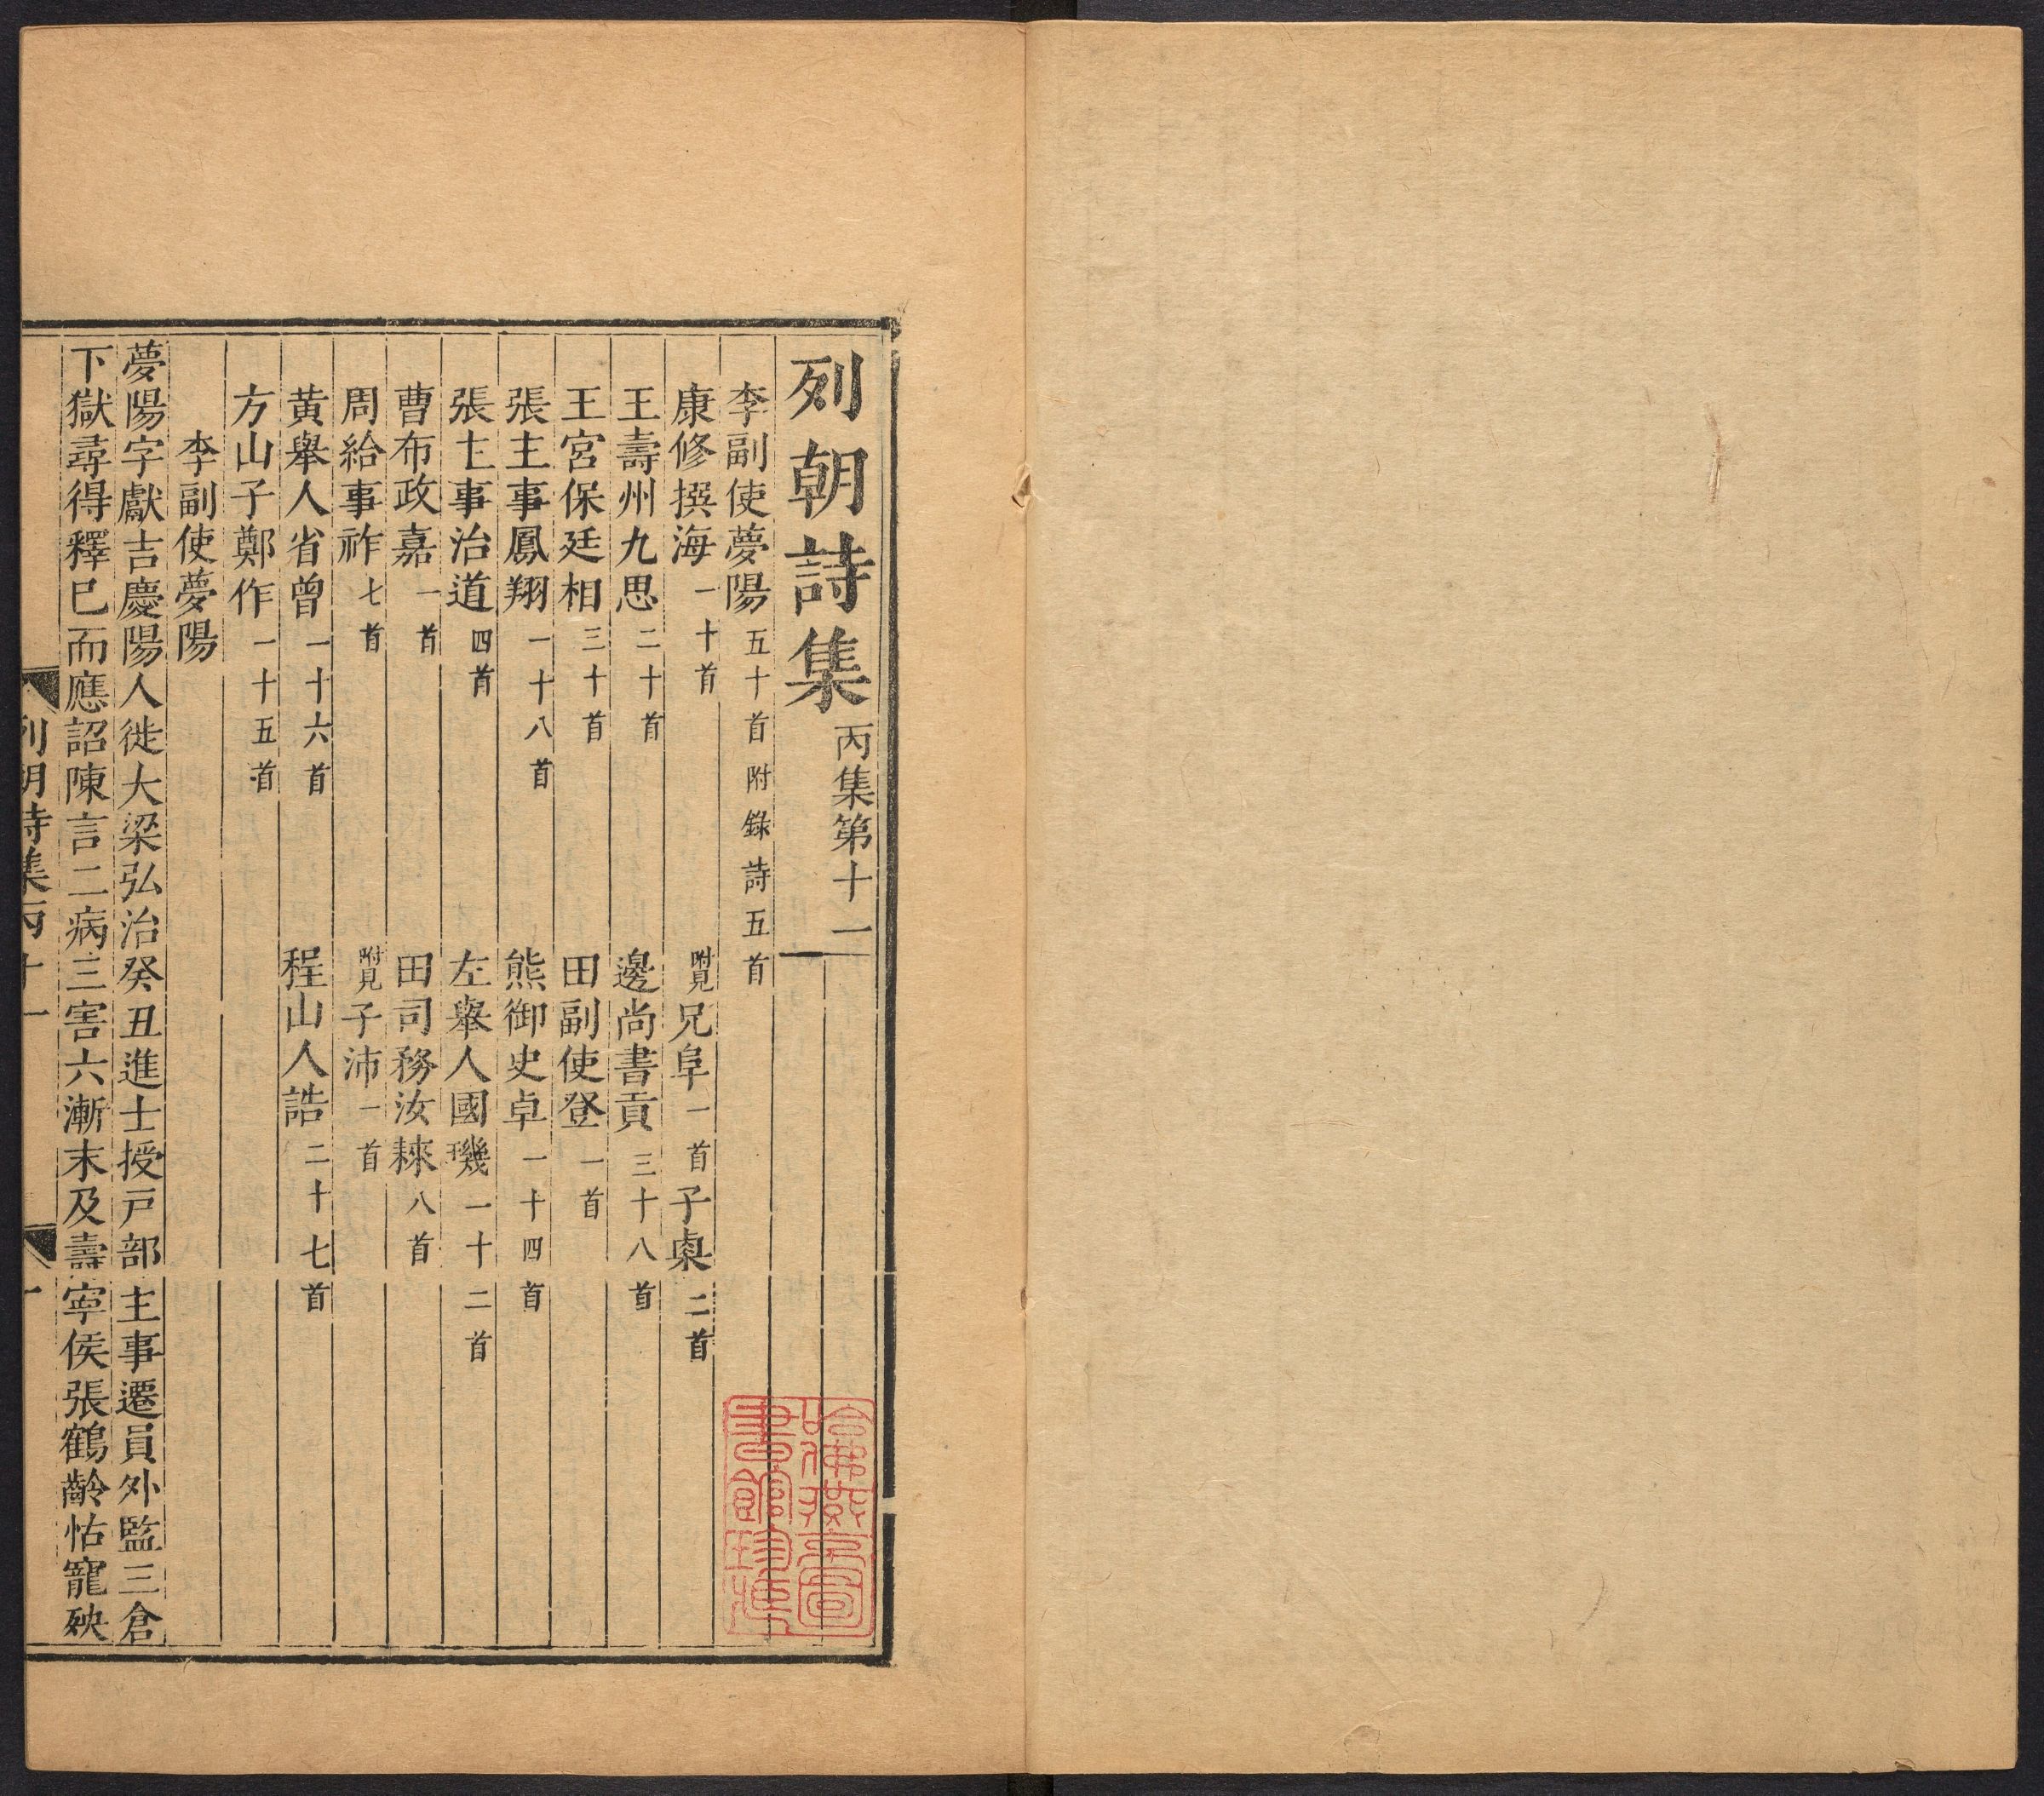 列朝詩集 丙集第十一
李副使夢陽 五十首 附錄詩五首
康修撰海 一十首 附見兄阜 一首 子㮚 二首
王壽州九思 二十首 邊尚書貢 三十八首
王宮保廷相 三十首 田副使登 一首
張主事鳳翔 一十八首 熊御史卓 一十四首
張主事治道 四首 左舉人國璣 一十二首
曹布政嘉 一首 田司務汝䅘 八首
周給事祚 七首 附見子沛 一首
黃舉人省曾 一十六首 程山人誥 二十七首
方山子鄭作 一十五首
李副使夢陽
夢陽字獻吉慶陽人徙大梁弘治癸丑進士授戸部主事遷員外監三倉
下獄尋得釋巳而應詔陳言二病三害六漸末及壽寧侯張鶴齡怙寵殃
列朝詩集丙十一 一
哈佛燕京圖
書館珍藏